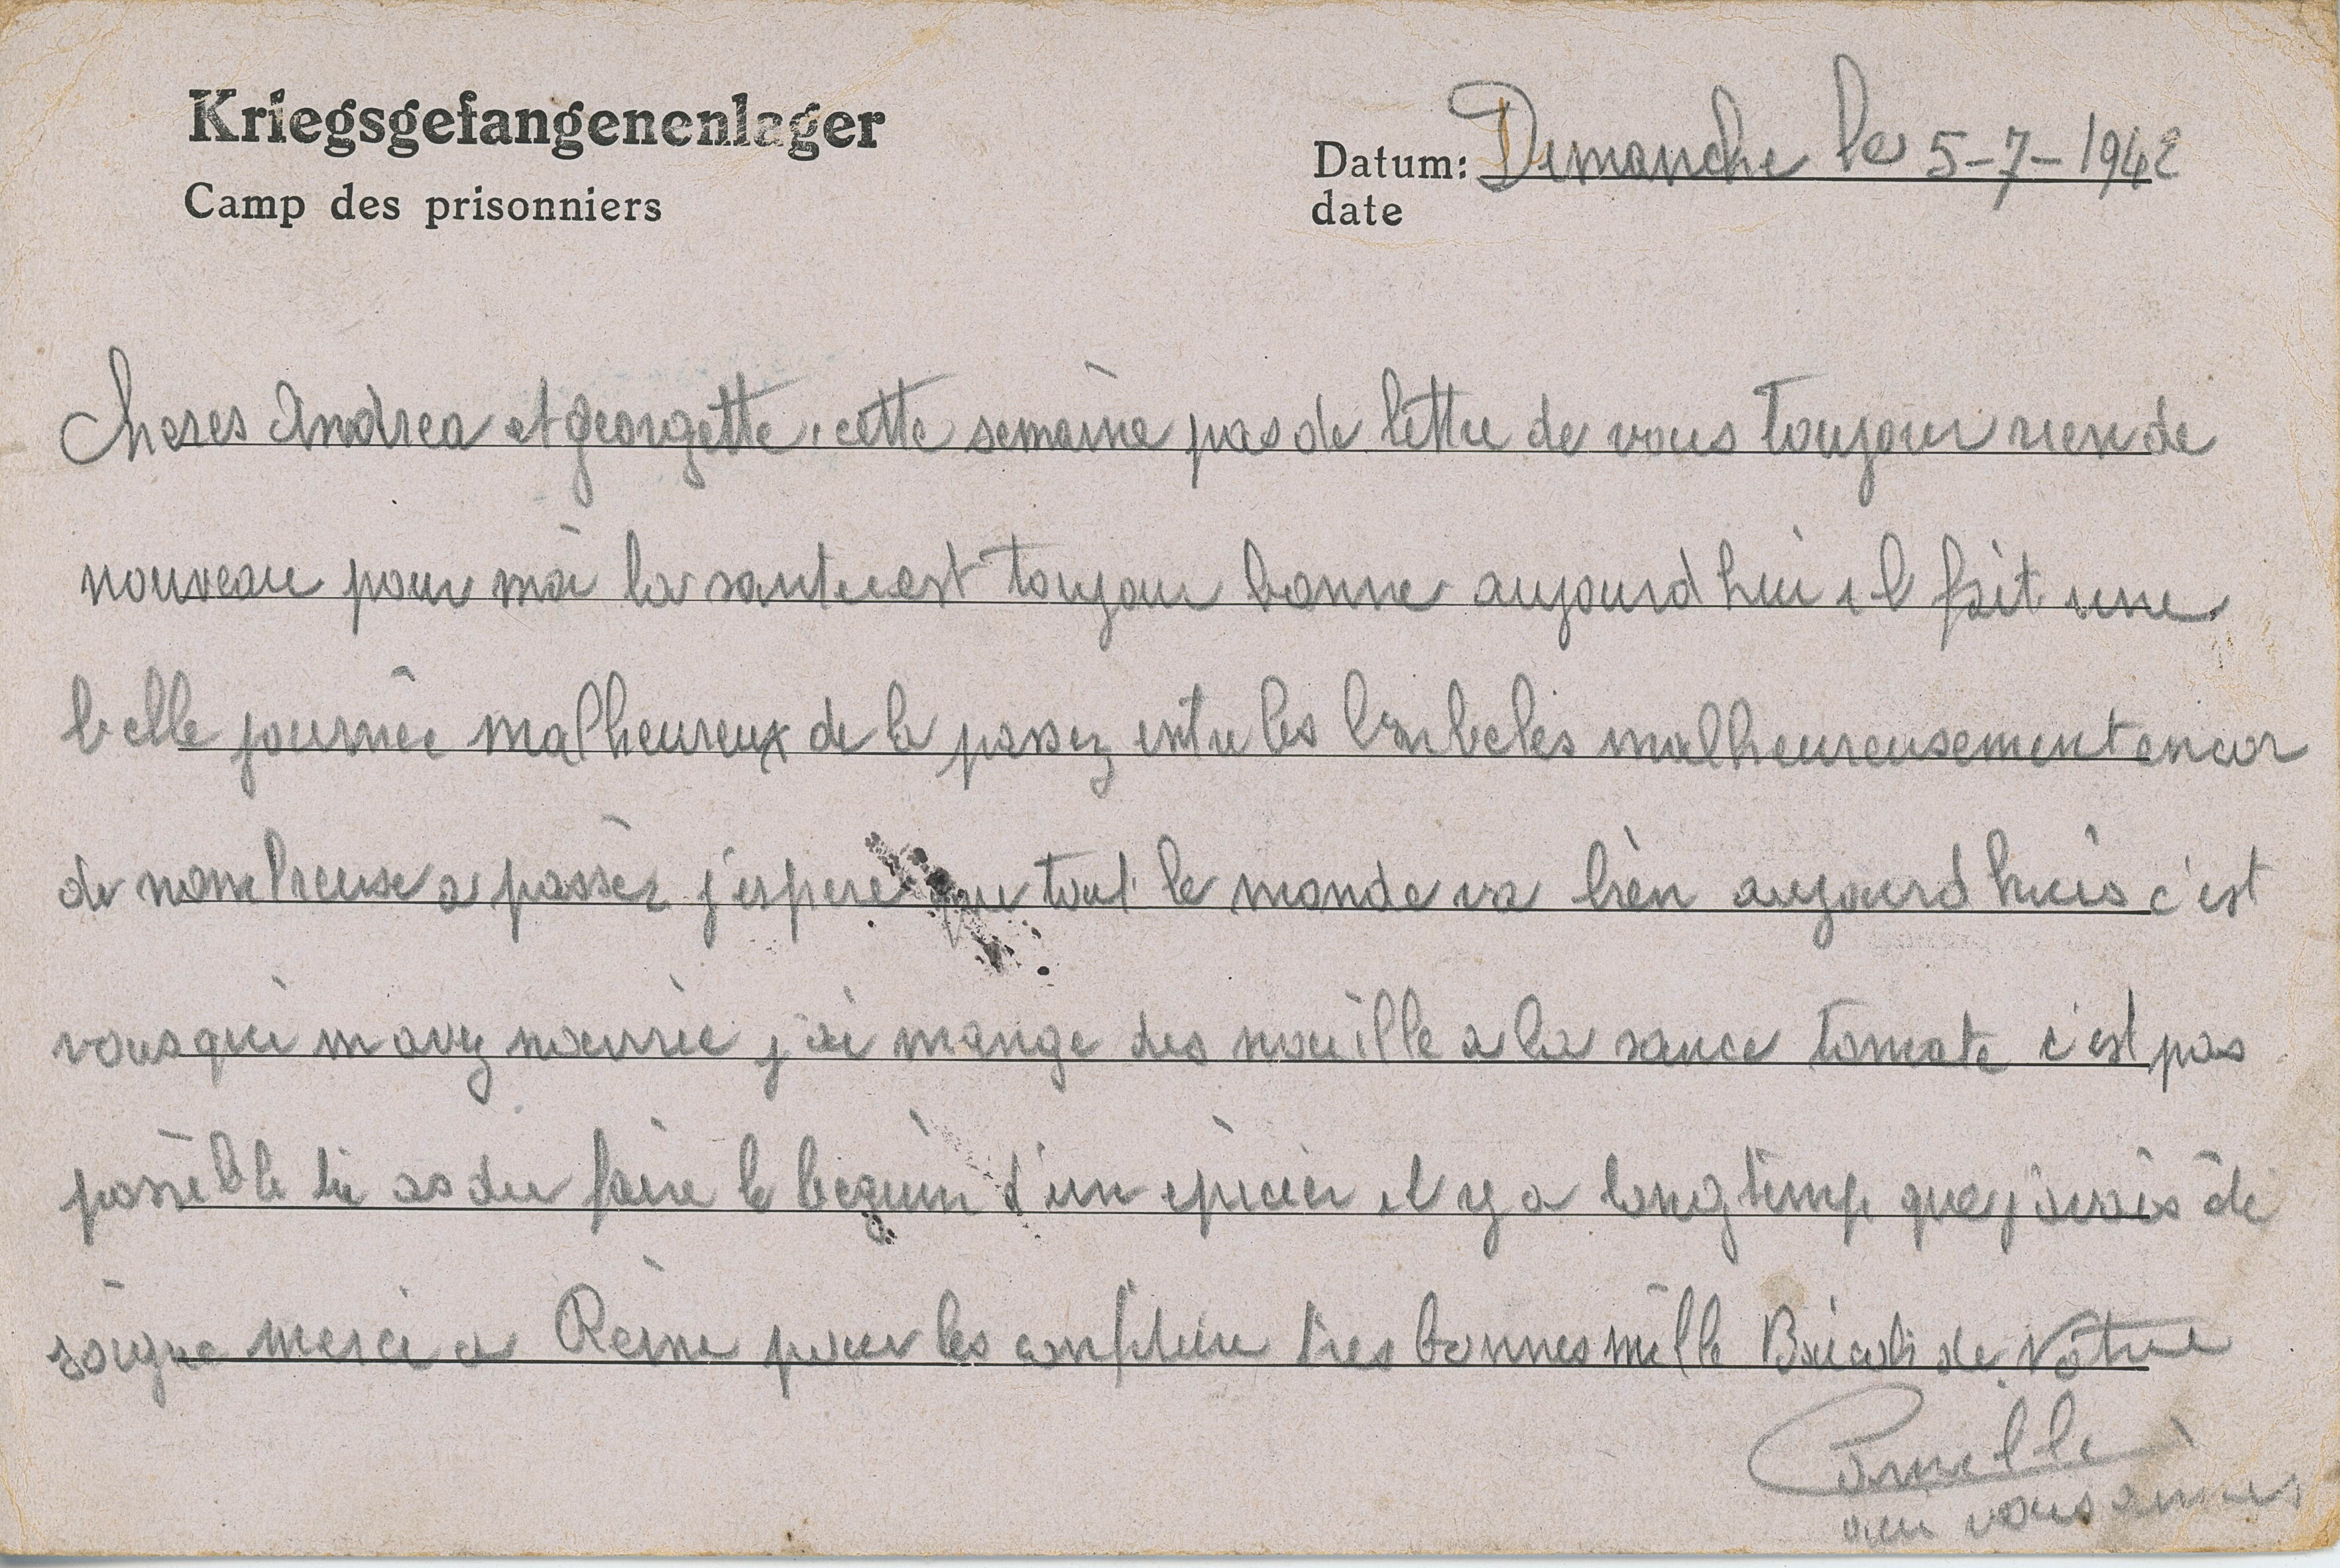 Kriegsgefangenenlager
Camp des prisonniers
Datum: Dimanche le 5-7-1942
date
Cheres Andrea et georgette, cette semaine pas de lettre de vous toujour rien de
nouveau pour moi la sante est toujour bonne aujourd hui il fait une
belle journée malheureux de la passez entre les barbelés malheureusement encor
de nombreuse a passer j'espere que tout le monde va bien aujourd huis c'est
vous qui m avez nourrie j'ai mange des nouille a la sauce tomate c'est pas
possible tu as du faire le beguin d'un épicier il y a longtemp que j'avais
merci a Reine pour les confiture tres bonnes mille de votre
qui vous aimes